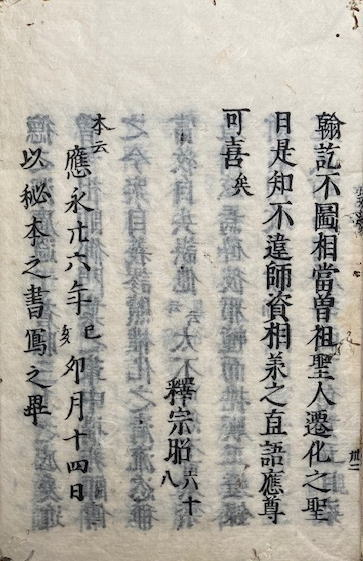 翰訖不圖相當曽祖聖人遷化之聖
日是知不違師資相羕之直語應尊
可喜矣
釋宗昭六十八
本云
應永廿六年己亥卯月十四日
以秘本之書寫之畢